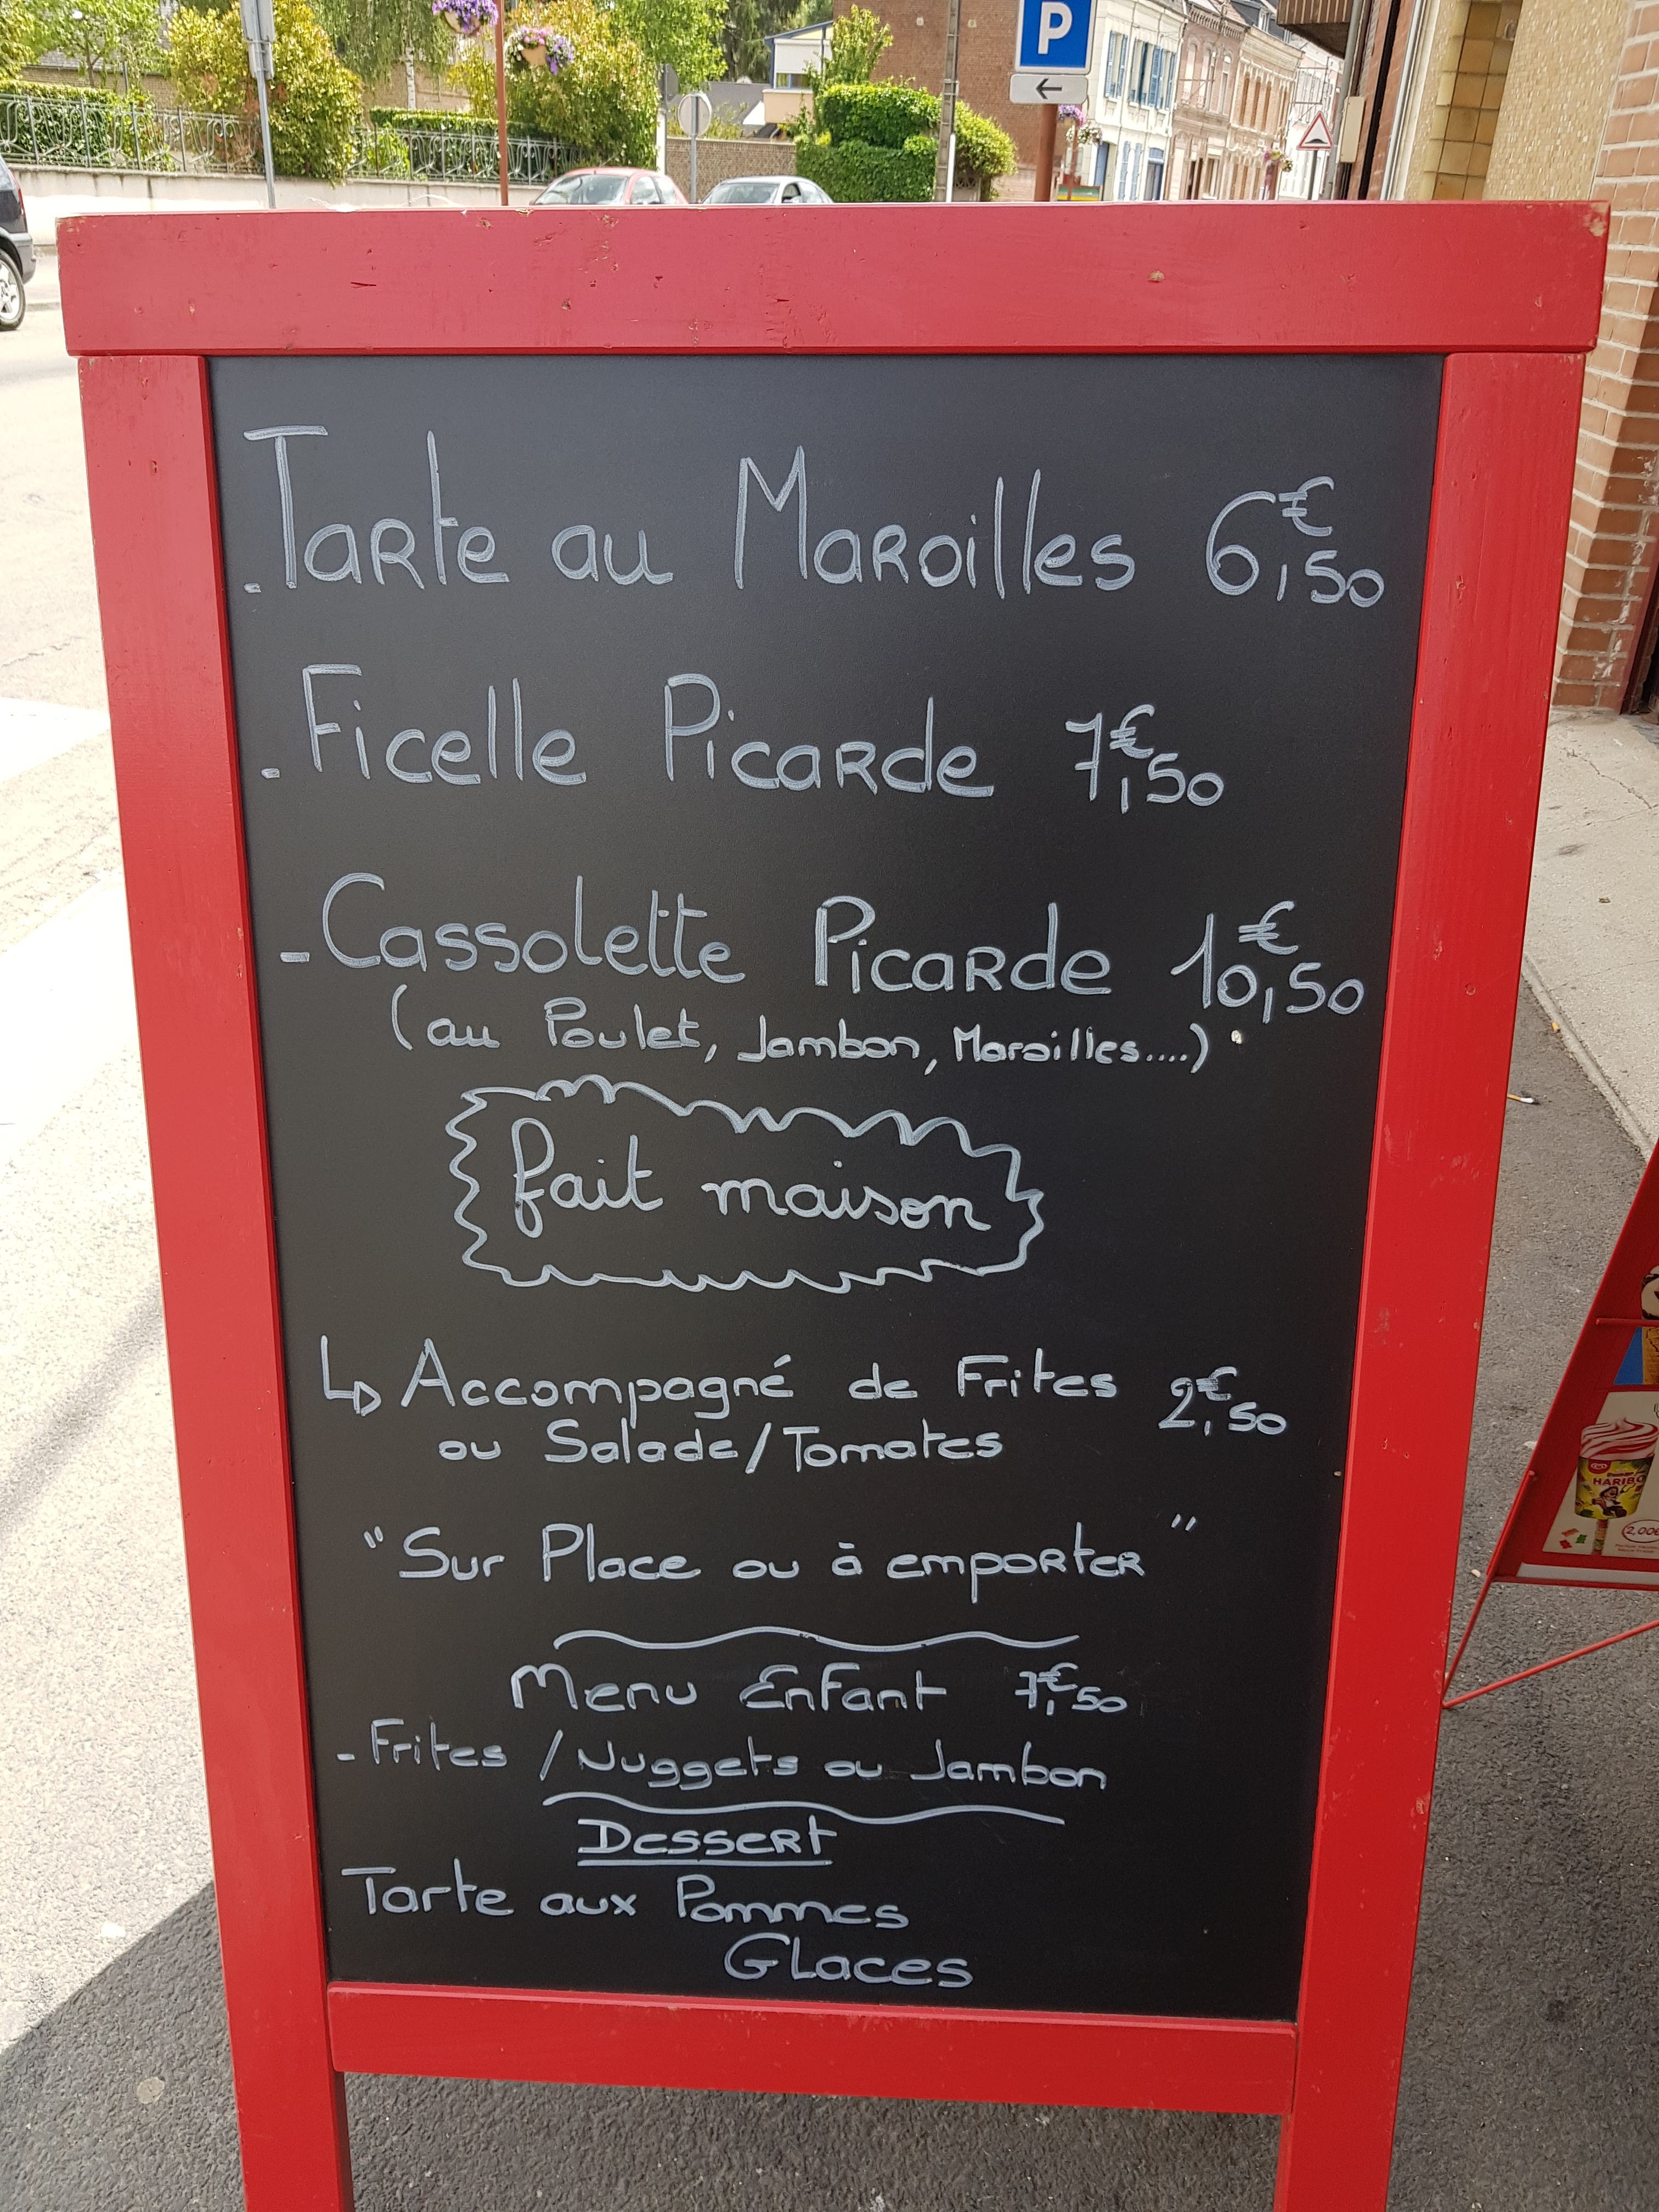 P
- Tarte au Maroilles 6€,50
- Ficelle Picarde 7€,50
- Cassolette Picarde 10€,50
(au Poulet, Jambon, Maroilles....)
fait maison
↳ Accompagné de Frites 2€,50
ou Salade/Tomates
"Sur Place ou à emporter"
Menu Enfant 7€,50
- Frites / Nuggets ou Jambon
Dessert
Tarte aux Pommes
Glaces
HARIBO
2,00€